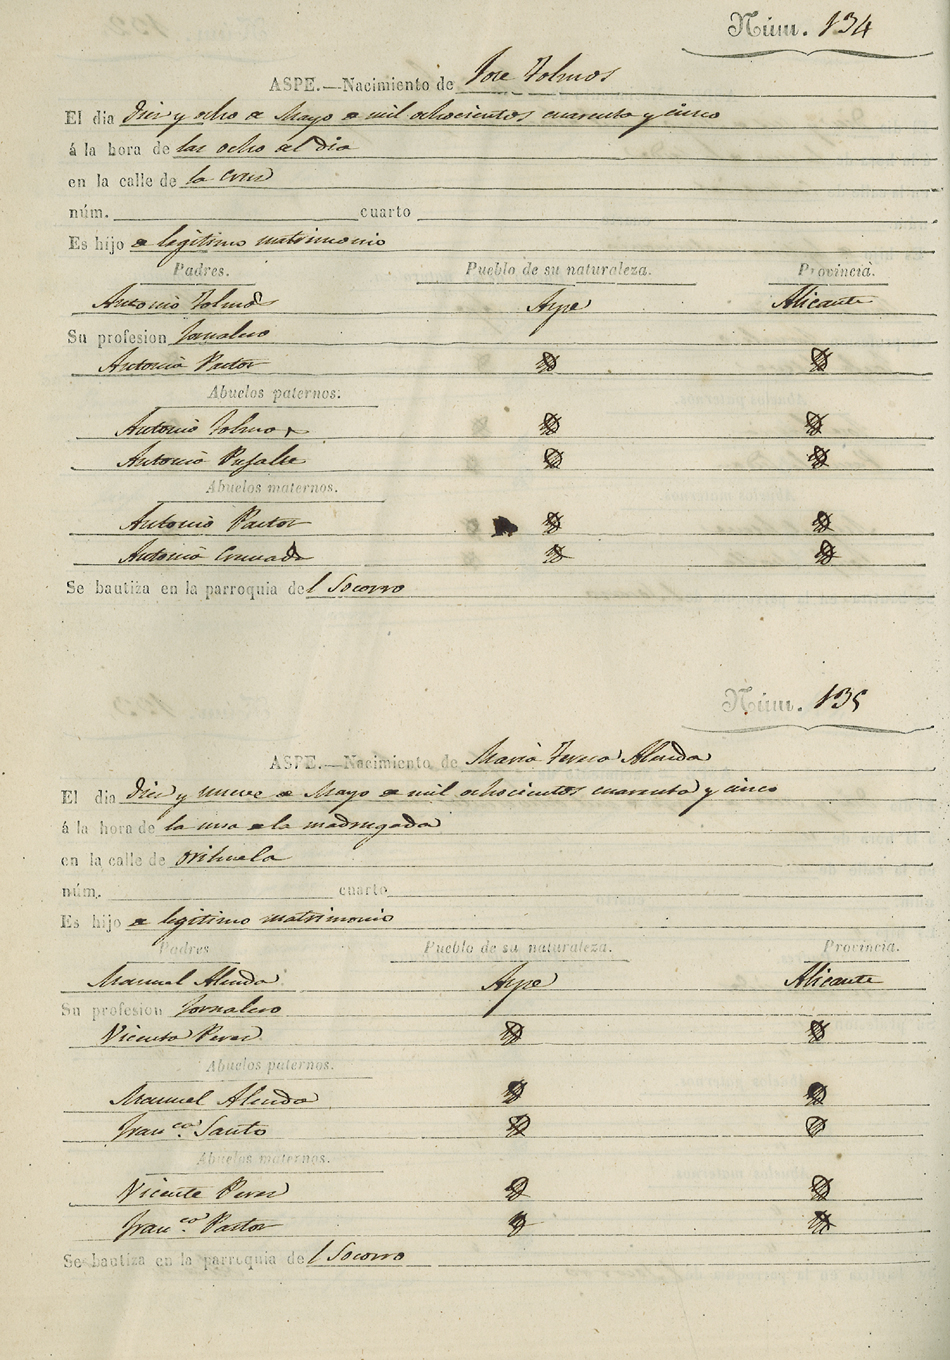 Núm. 134
ASPE.—Nacimiento de Jose Tolmos
El dia Diez y ocho de Mayo de mil ochocientos cuarenta y cinco
á la hora de las ocho del dia
en la calle de la Cruz
núm. cuarto
Es hijo de legitimo matrimonio
Padres. Pueblo de su naturaleza. Provincia.
Antonio Tolmos Aspe Alicante
Su profesion Jornalero
Antonia Pastor
Abuelos paternos:
Antonio Tolmos
Antonia
Abuelos maternos.
Antonio Pastor
Antonia
Se bautiza en la parroquia del Socorro
Núm. 135
ASPE.—Nacimiento de Maria Teresa Alenda
El dia Diez y nueve de Mayo de mil ochocientos cuarenta y cinco
á la hora de la una de la madrugada
en la calle de orihuela
núm. cuarto
Es hijo de legitimo matrimonio
Padres Pueblo de su naturaleza. Provincia.
Manuel Alenda Aspe Alicante
Su profesion Jornalero
Vicenta Perez
Abuelos paternos.
Manuel Alenda
Fran.ca Santo
Abuelos maternos.
Vicente Perez
Fran.ca Pastor
Se bautiza en la parroquia del Socorro